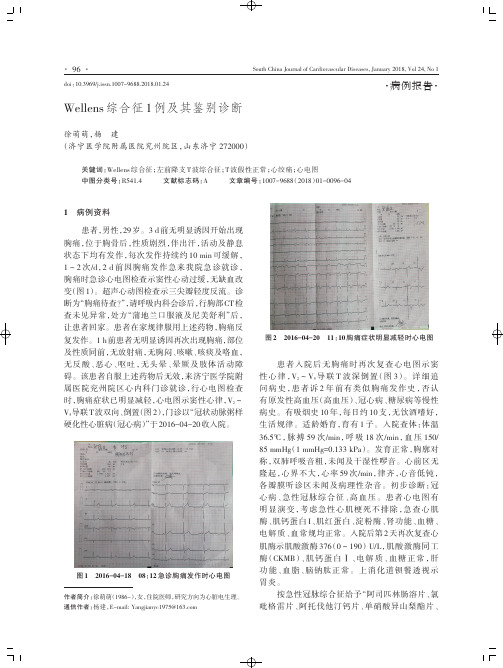 · 96 ·
South China Journal of Cardiovascular Diseases, January 2018, Vol 24, No 1
doi:10.3969/j.issn.1007-9688.2018.01.24
·病例报告·
Wellens 综合征 1 例及其鉴别诊断
徐萌萌,杨　建
(济宁医学院附属医院兖州院区,山东济宁 272000)
关键词:Wellens综合征;左前降支T波综合征;T波假性正常;心绞痛;心电图
中图分类号:R541.4　文献标志码:A　文章编号:1007-9688(2018)01-0096-04
1　病例资料
患者,男性,29岁。3 d前无明显诱因开始出现
胸痛,位于胸骨后,性质剧烈,伴出汗,活动及静息
状态下均有发作,每次发作持续约10 min可缓解,
1～2次/d,2 d前因胸痛发作急来我院急诊就诊,
胸痛时急诊心电图检查示窦性心动过缓,无缺血改
变(图1)。超声心动图检查示三尖瓣轻度反流。诊
断为“胸痛待查?”,请呼吸内科会诊后,行胸部CT检
查未见异常,处方“蒲地兰口服液及尼美舒利”后,
让患者回家。患者在家规律服用上述药物,胸痛反
复发作。1 h前患者无明显诱因再次出现胸痛,部位
及性质同前,无放射痛,无胸闷、咳嗽、咳痰及咯血,
无反酸、恶心、呕吐,无头晕、晕厥及肢体活动障
碍。该患者自服上述药物后无效,来济宁医学院附
属医院兖州院区心内科门诊就诊,行心电图检查
时,胸痛症状已明显减轻,心电图示窦性心律,V₂～
V₅导联T波双向、倒置(图2),门诊以“冠状动脉粥样
硬化性心脏病(冠心病)”于2016-04-20收入院。
图1　2016-04-18　08:12急诊胸痛发作时心电图
作者简介:徐萌萌(1986-),女,住院医师,研究方向为心脏电生理。
通信作者:杨建,E-mail: Yangjianyc1975@163.com
图2　2016-04-20　11:10胸痛症状明显减轻时心电图
患者入院后无胸痛时再次复查心电图示窦
性心律,V₂～V₄导联T波深倒置(图3)。详细追
问病史,患者诉2年前有类似胸痛发作史,否认
有原发性高血压(高血压)、冠心病、糖尿病等慢性
病史。有吸烟史10年,每日约10支,无饮酒嗜好,
生活规律。适龄婚育,育有1子。入院查体:体温
36.5℃,脉搏59次/min,呼吸18次/min,血压150/
85 mmHg(1 mmHg=0.133 kPa)。发育正常,胸廓对
称,双肺呼吸音粗,未闻及干湿性啰音。心前区无
隆起,心界不大,心率59次/min,律齐,心音低钝,
各瓣膜听诊区未闻及病理性杂音。初步诊断:冠
心病、急性冠脉综合征、高血压。患者心电图有
明显演变,考虑急性心肌梗死不排除,急查心肌
酶、肌钙蛋白I、肌红蛋白、淀粉酶、肾功能、血糖、
电解质、血常规均正常。入院后第2天再次复查心
肌酶示肌酸激酶376(0～190) U/L,肌酸激酶同工
酶(CKMB)、肌钙蛋白I、电解质、血糖正常,肝
功能、血脂、脑钠肽正常。上消化道钡餐透视示
胃炎。
按急性冠脉综合征给予“阿司匹林肠溶片、氯
吡格雷片、阿托伐他汀钙片、单硝酸异山梨酯片、